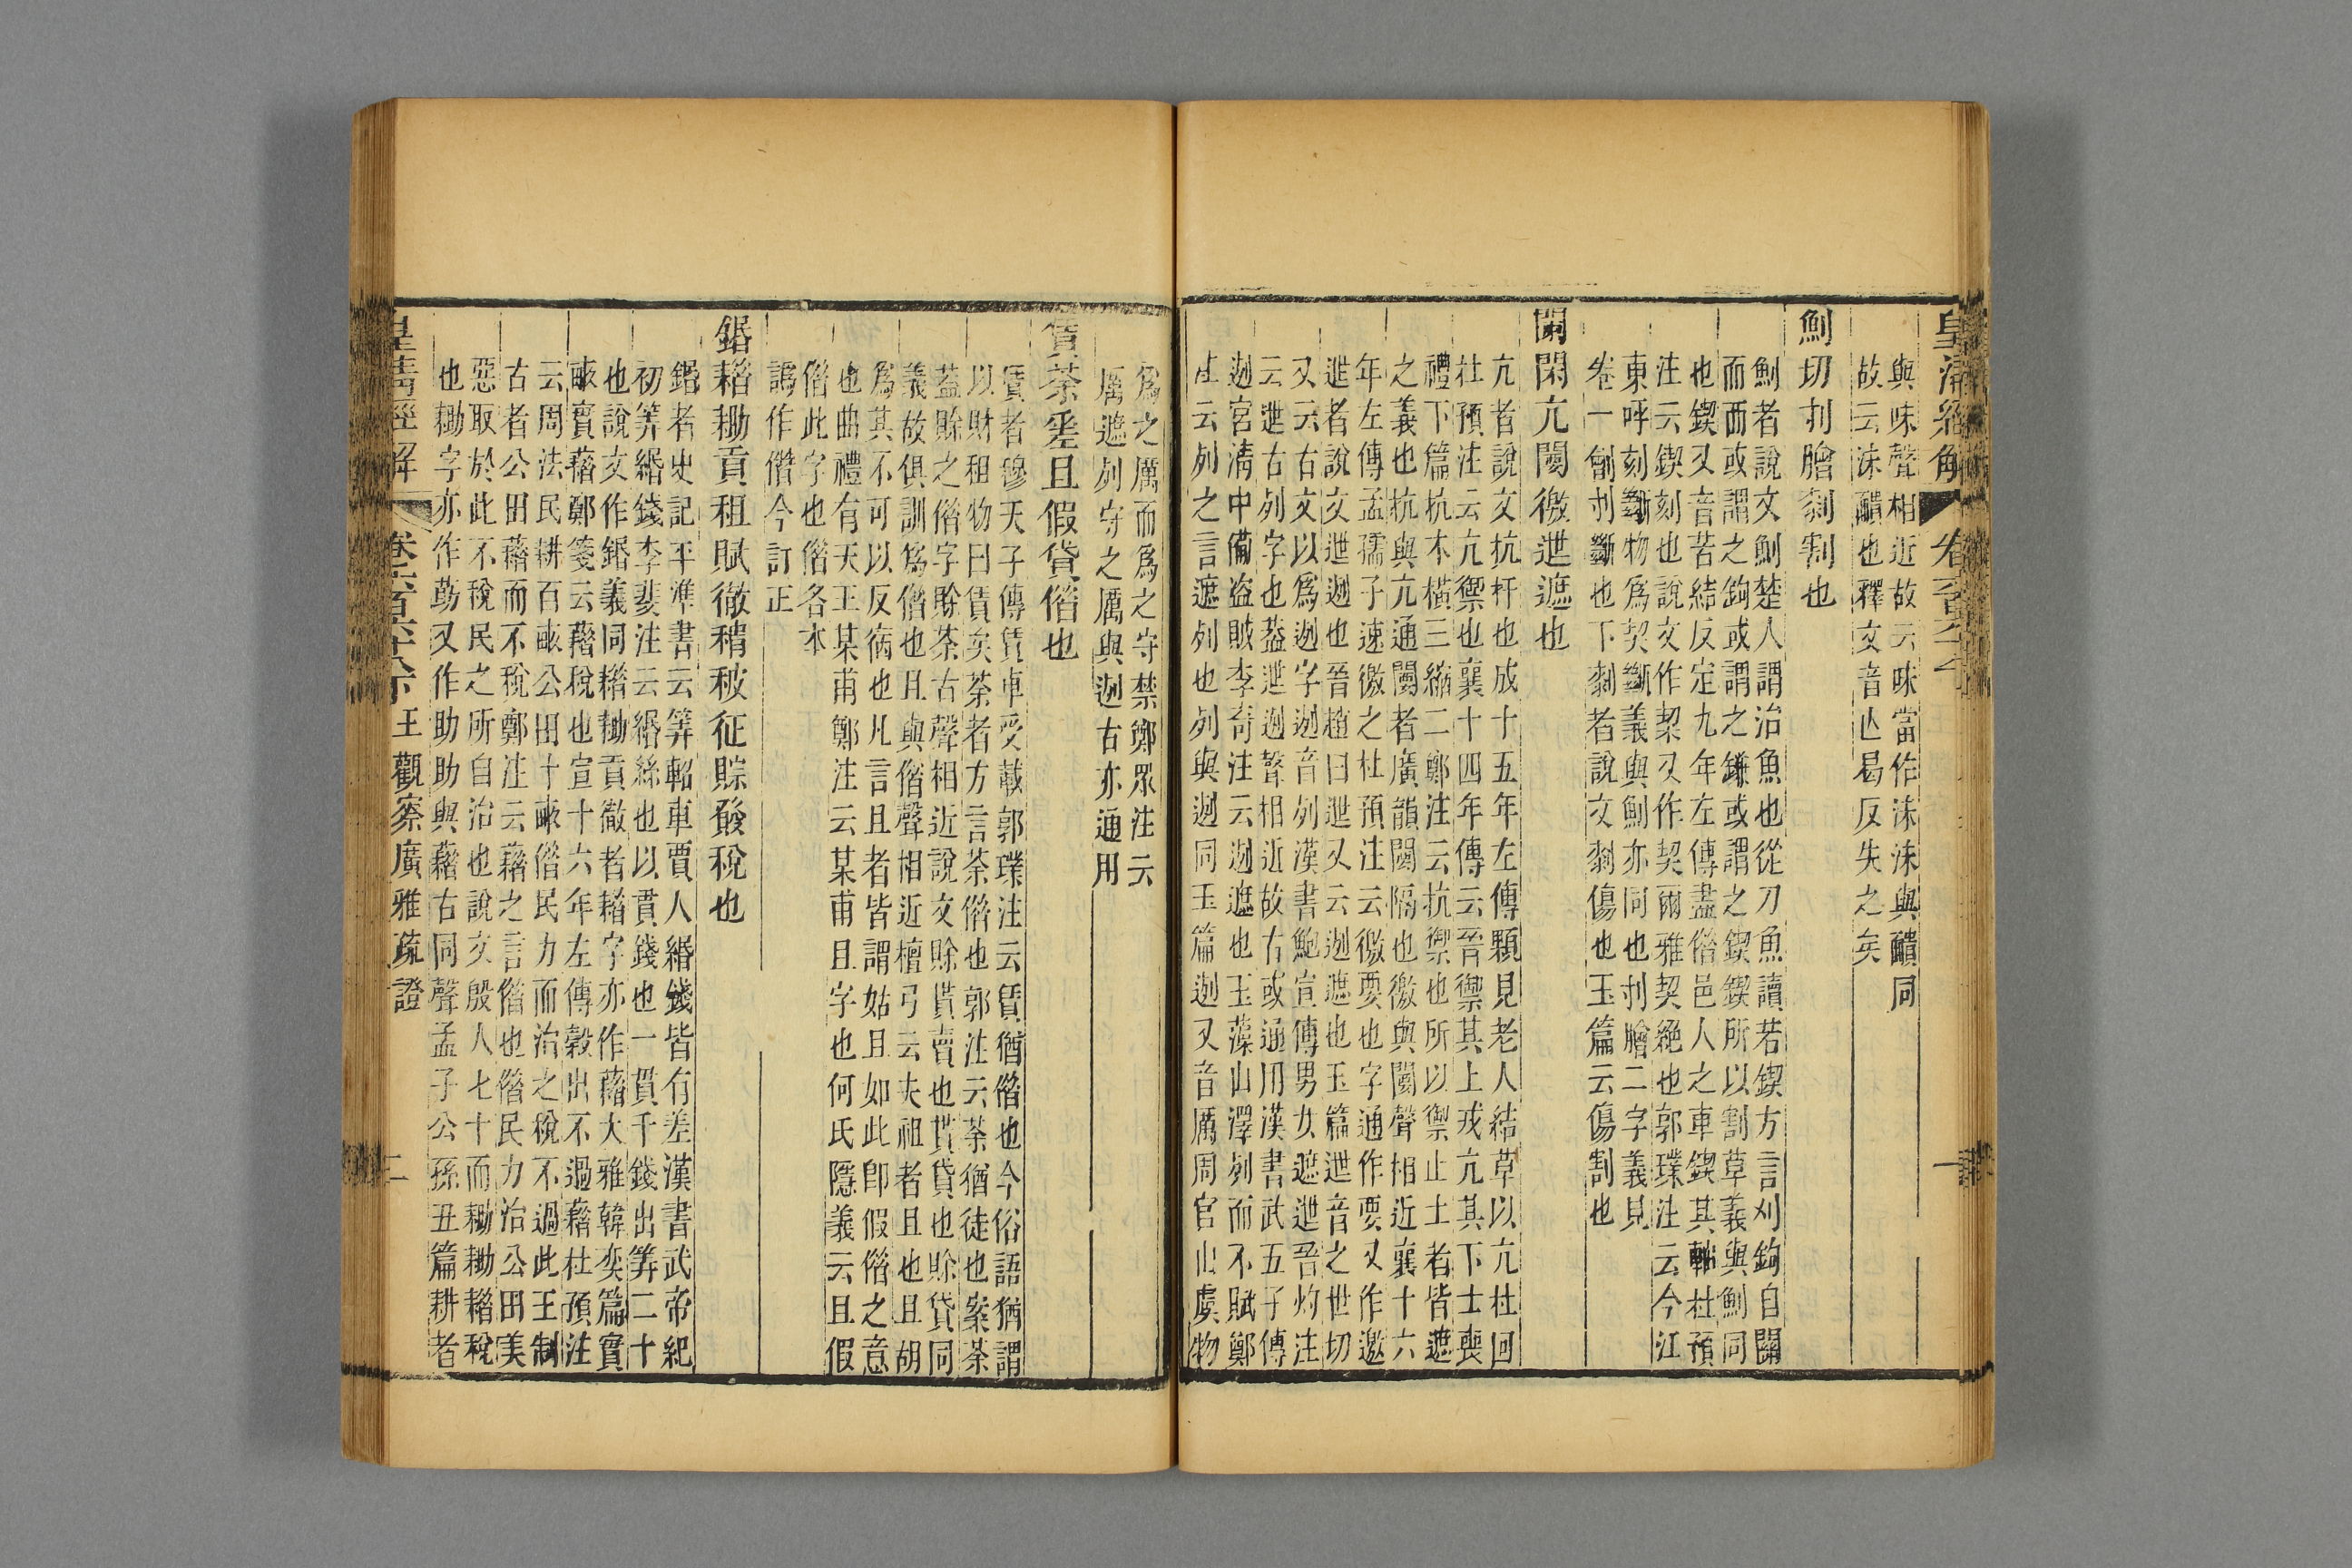 皇清經解
與味聲相近故云味當作沬沬與䤈同
故云沬䤈也釋文音亡曷反失之矣
魝切刌膾剺割也
魝者說文魝楚人謂治魚也從刀魚讀若鍥方言刈鉤自關
而西或謂之鉤或謂之鎌或謂之鍥鍥所以割草義與魝同
也鍥又音苦結反定九年左傳盡借邑人之車鍥其軸杜預
注云鍥刻也說文作栔又作契爾雅契絕也郭璞注云今江
東呼刻斷物爲契斷義與魝亦同也刌膾二字義見
卷一劊刌斷也下剺者說文剺傷也玉篇云傷割也
闌閑亢閡徼迣遮也
亢者說文抗扞也成十五年左傳顆見老人結草以亢杜回
杜預注云亢禦也襄十四年傳云晉禦其上戎亢其下士喪
禮下篇抗木橫三縮二鄭注云抗禦也所以禦止土者皆遮
之義也抗與亢通閡者廣韻閡隔也徼與閡聲相近襄十六
年左傳孟孺子速徼之杜預注云徼要也字通作要又作邀
迣者說文迣迾也晉趙曰迣又云迾遮也玉篇迣音之世切
又云古文以爲迾字迾音列漢書鮑宣傳男女遮迣晉灼注
云迣古列字也葢迣迾聲相近故古或通用漢書武五子傳
迾宮淸中備盜賊李奇注云迾遮也玉藻山澤列而不賦鄭
注云列之言遮列也列與迾同玉篇迾又音厲周官山虞物
爲之厲而爲之守禁鄭眾注云
厲遮列守之厲與迾古亦通用
賃荼乿且假貸借也
賃者穆天子傳賃車受載郭璞注云賃猶借也今俗語猶謂
以財租物曰賃矣荼者方言荼借也郭注云荼猶徒也案荼
葢賒之借字賒荼古聲相近說文賒貰賣也貰貸也賒貸同
義故俱訓爲借也且與借聲相近檀弓云夫祖者且也且胡
爲其不可以反宿也凡言且者皆謂姑且如此卽假借之意
也曲禮有天王某甫鄭注云某甫且字也何氏隱義云且假
借此字也借各本
譌作僭今訂正
鍲耤耡貢租賦徹䅐䅆征賨發稅也
鍲者史記平準書云筭軺車賈人緡錢皆有差漢書武帝紀
初筭緡錢李斐注云緡絲也以貫錢也一貫千錢出筭二十
也說文作鍲義同耤耡貢徹者耤字亦作藉大雅韓奕篇實
畝實藉鄭箋云藉稅也宣十六年左傳穀出不過藉杜預注
云周法民耕百畝公田十畝借民力而治之稅不過此王制
古者公田藉而不稅鄭注云藉之言借也借民力治公田美
惡取於此不稅民之所自治也說文殷人七十而耡耡耤稅
也耡字亦作莇又作助助與藉古同聲孟子公孫丑篇耕者
皇淸經解
王觀察廣雅疏證
二